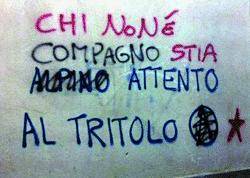 CHI NONÉ
COMPAGNO STIA
ATTENTO
AL TRITOLO